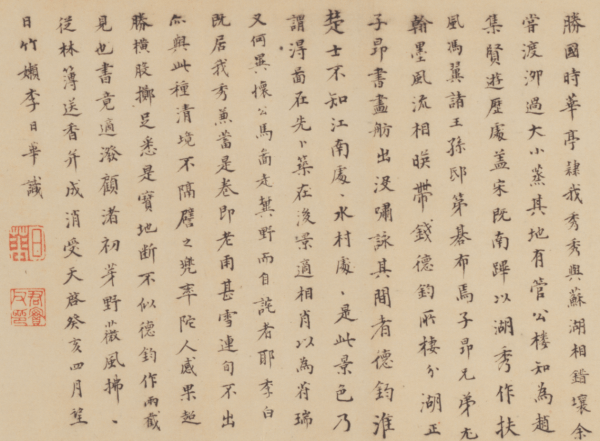 勝國時華亭隸我秀秀與蘇湖相錯壤余
嘗渡泖過大小蒸其地有管公樓知為趙
集賢遊歷處蓋宋既南蹕以湖秀作扶
風馮翼諸王孫邸第碁布焉子昂兄弟尤
翰墨風流相映帶錢德鈞所棲分湖正
子昂書畫舫出沒嘯詠其間者德鈞淮
楚士不知江南處〻水村處〻是此景色乃
謂得畫在先卜築在後景適相肖以為符瑞
又何異懷公馬圖走冀野而自詫者耶李白
既居我秀兼蓄是卷即老雨甚雪連旬不出
亦與此種清境不隔譬之兜率陀人感果超
勝橫股擲足悉是寶地斷不似德鈞作兩截
見也書竟適潑顧渚初芽野薇風拂〻
從林薄送香并成消受天啓癸亥四月望
日竹嬾李日華識